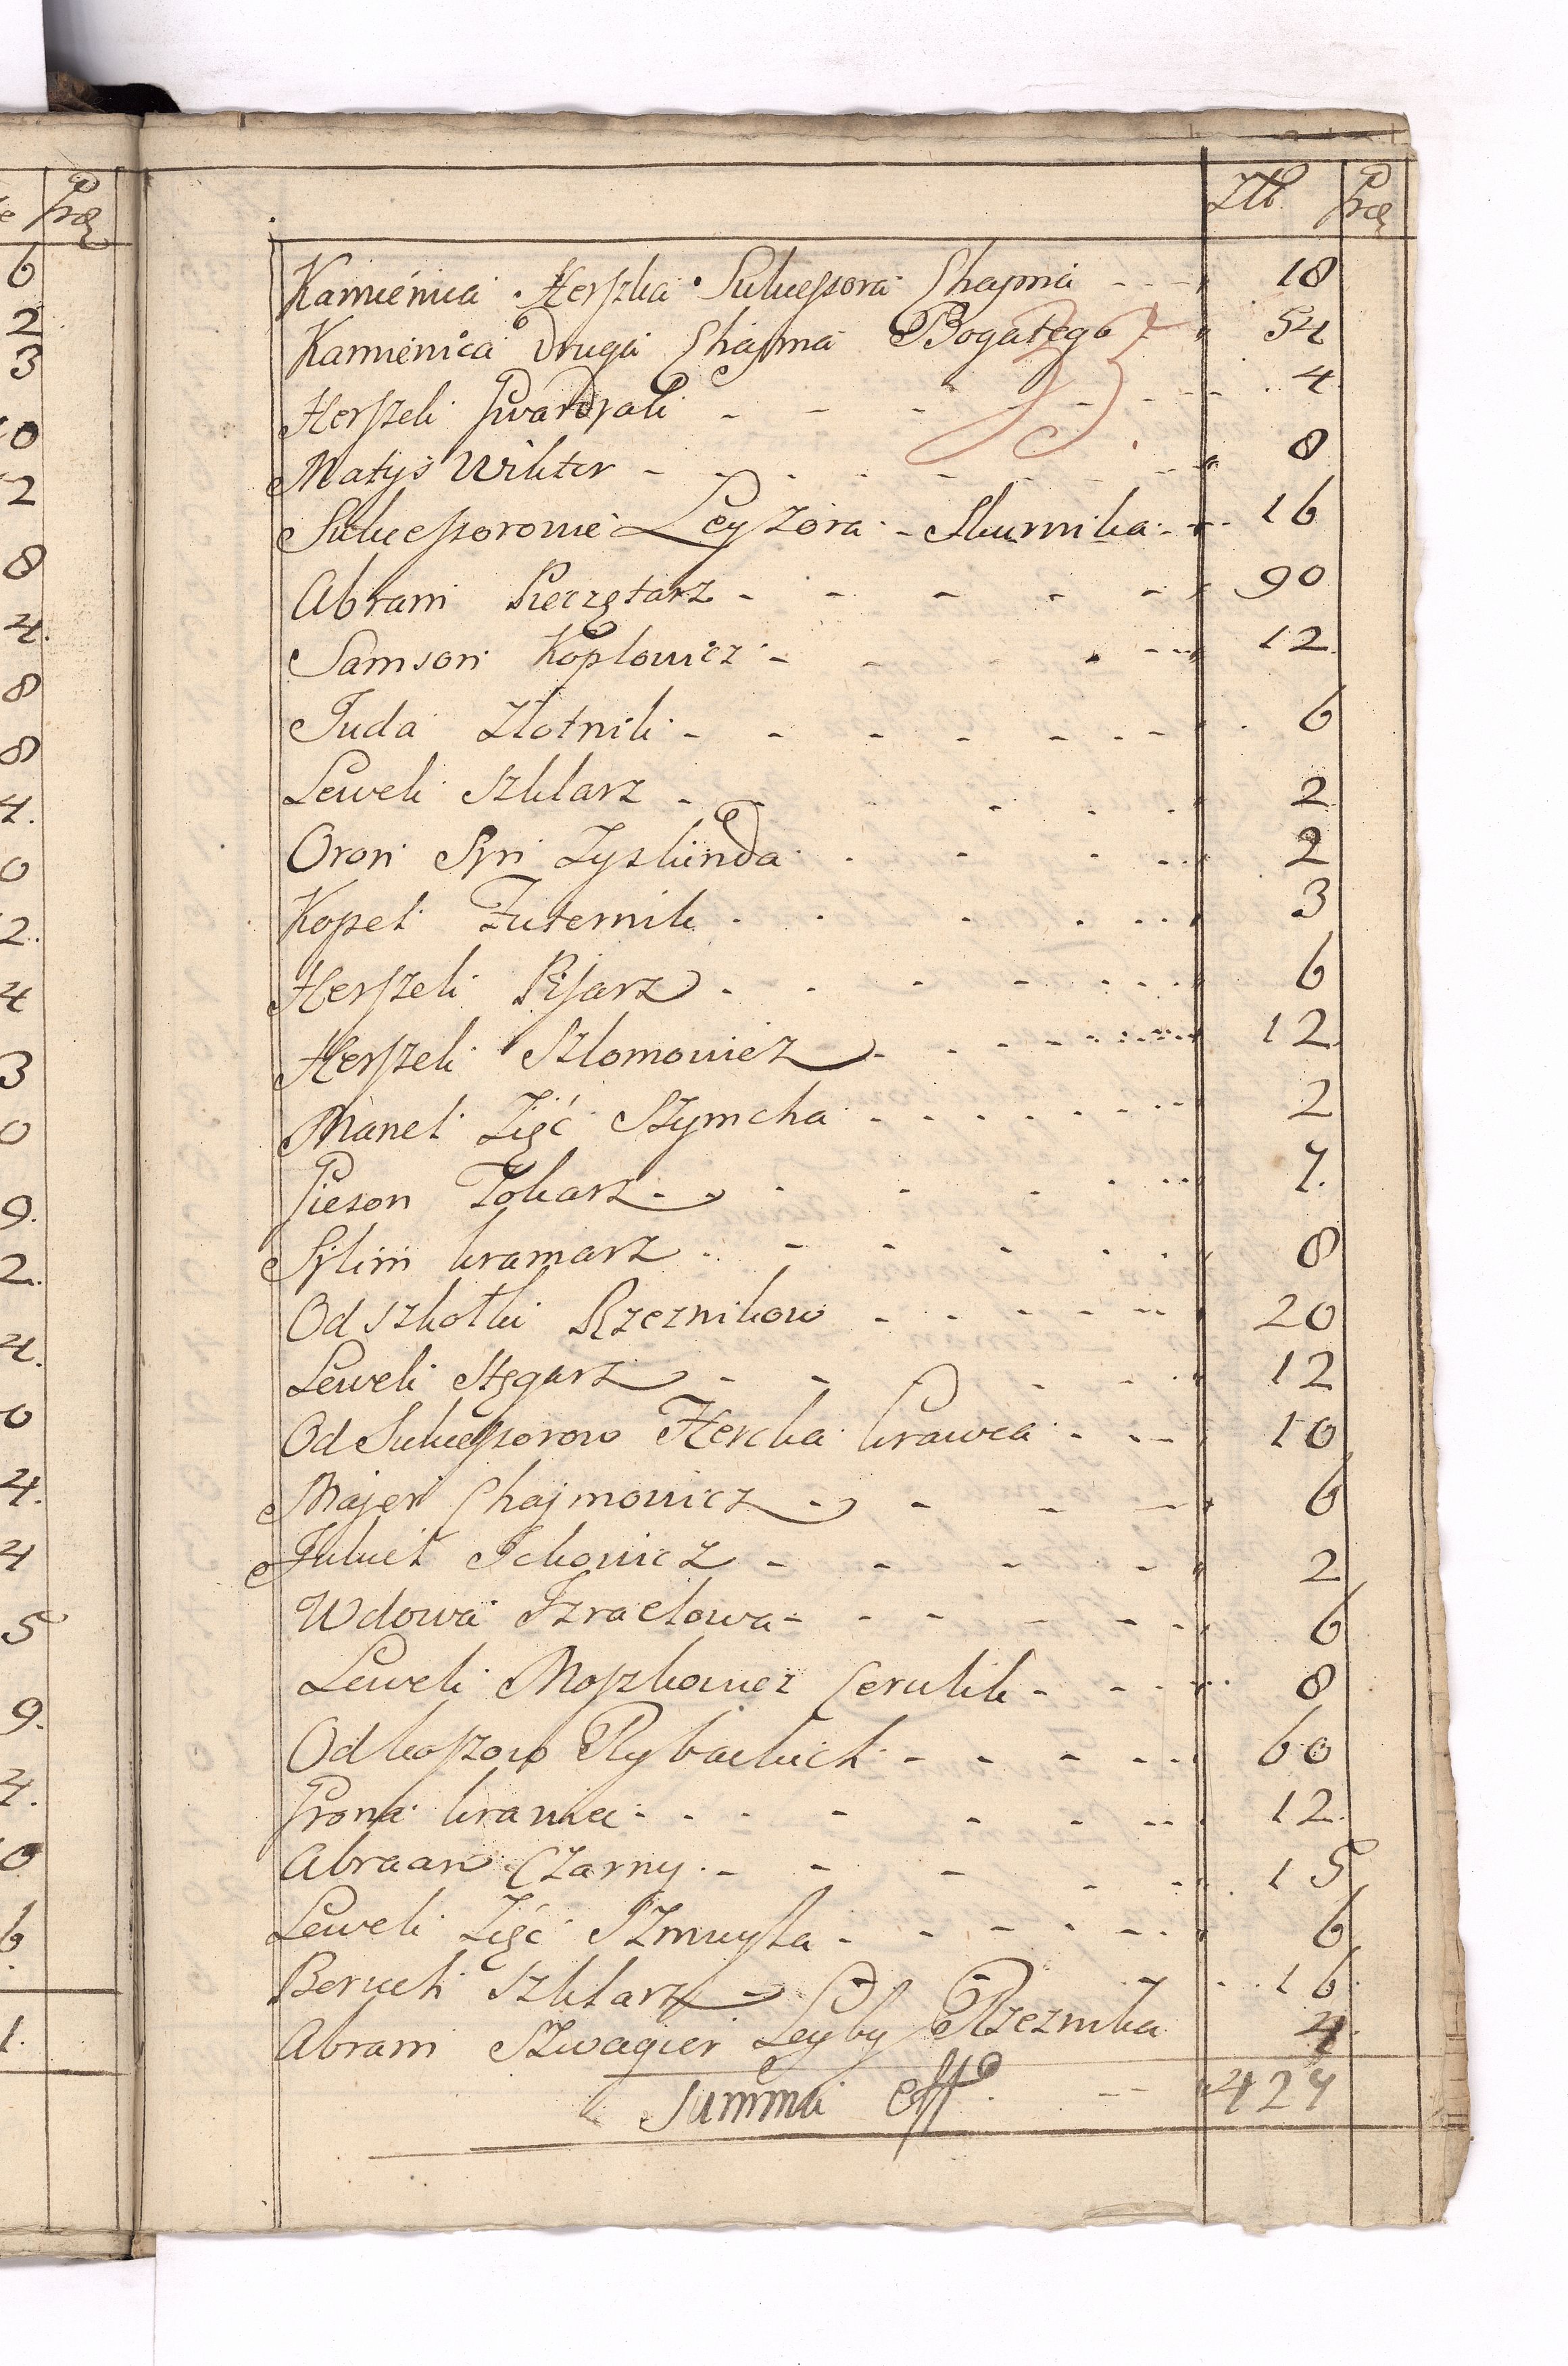 Złł. Grę
Kamienica Herszka Sukcessora Chajma 18
Kamienica Druga Chajma Bogatego 54
Herszek Gwardyak 4
Matys Wikter 8
Sukcessorowie Leyzora Skurnika 16
Abram Pieczętarz 90
Samson Koplowicz 12
Juda Złotnik 6
Lewek Szklarz 2
Oron Syn Zyskinda 2
Kopel Futernik 3
Herszek Pisarz 6
Herszek Szlomowicz 12
Manel Zięć Szymcha 2
Gieson Tokarz 7.
kramarz 8
Od szkołki Rzeznikow 20
Lewek Stęgarz 12
Od Sukcessorow Hercka krawca 10
Majer Chajmowicz 6
Jckowicz 2
Wdowa Izraelowa 6
Lewek Moszkowicz Cerulik 8
Od koszow Rybackich 60
krawiec 12
Abraam Czarny 15
Lewek Zięć Szmuyła 6
Beruch Szklarz 16
Abram Szwagier Leyby Rzeznika 4
Summa eff 427
Grę
6
2
3
0
2
8
4.
8
8
4.
0
2.
4
3
0
9.
2.
4.
0
4.
4
5
9.
4.
0
6.
1.